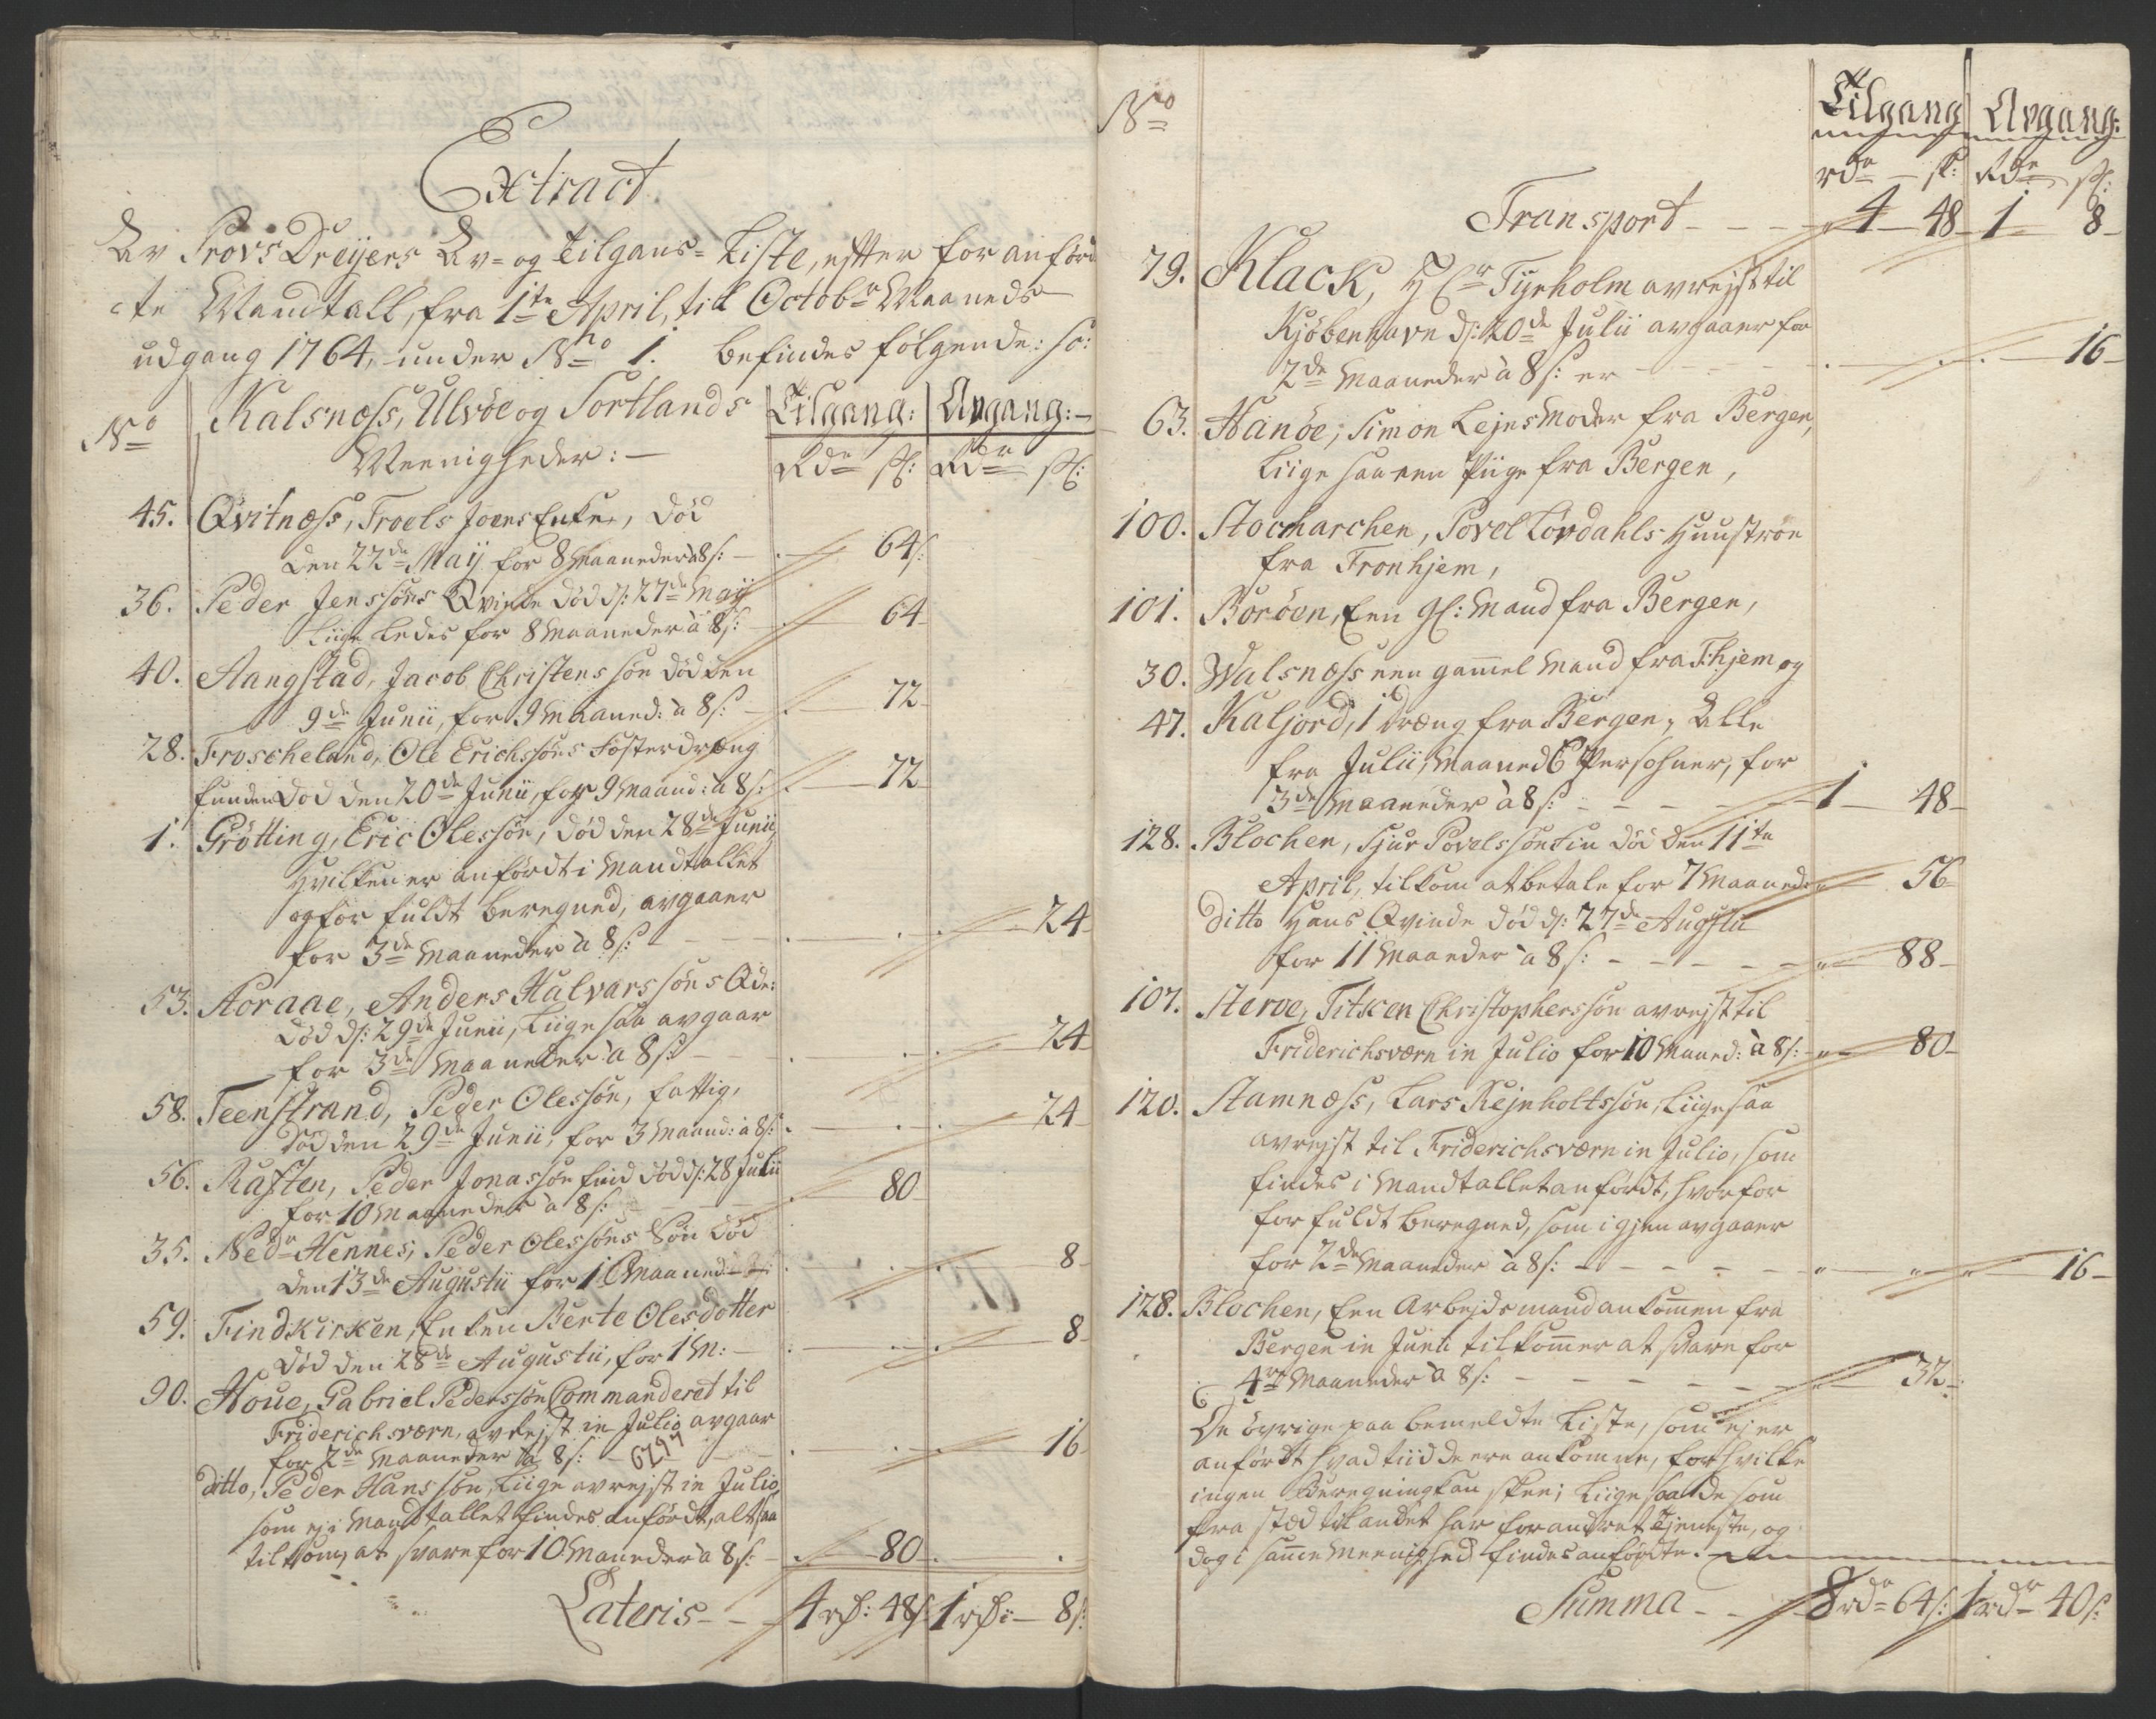 Extract
Av Provs Dreijers Av- og Tilgans- Liste, efter foranförd
-te Mandtall, fra 1te April, til Octobr Maaneds
udgang 1764, under No 1. befindes fölgende: so:
No Kalsnæss, Ulvöe og Sortlands Tilgang: Avgang:
Meenigheder: Rdr s: Rdr s:
45. Qvitnæss, Troels Joens Enke, död
den 22de Maij for 8 Maaneder à 8 s: 64 s:
36. Peder Jenssöns Qvinde död d: 27de Maij
Liige Ledes for 8 Maaneder à 8 s: 64
40. Aangstad, Jacob Christenssön död den
9de Junii, for 9 Maaned: à 8 s: 72
28. Froscheland, Ole Erichssöns Fosterdræng
funden död den 20de Junii, for 9 Maand: à 8 s: 72
1. Grötting, Eric Olessön, död den 28de Junii
hvilken er anfördt i Mandtallet
og for fuldt beregned, avgaaer
for 3de Maaneder à 8 s: 24
53. Aoraae, Anders Halvarssöns Qde:
död d: 29de Junii, Liigesaa avgaar
for 3de Maaneder à 8 s: 24
58. Teenstrand, Peder Olessön, fattig,
död den 29de Junii, for 3 Maand: à 8 s: 24
56. Raften, Peder Jonassön find död d: 28 Julii
for 10 Maaneder à 8 s: 80
35. Nedr Hennes, Peder Olessöns Sön död
den 13de Augustii for 1 Maaned 8
59. Findkirken, Enken Berte Olesdotter
död den 28de Augustii, for 1 M: 8
90. Houe, Gabriel Pederssön Commanderet til
Friderichsværn, avrejst in Julio avgaar
for 2de Maaneder à 8 s: 16
ditto, Peder Hanssön, Liige avrejst in Julio,
som ej i Mandtallet findes anfördt, altsaa
tilkom, at svare for 10 Maneder à 8 s: 80
Lateris 4 rs: 48 s: 1 rs: 8 s:
No Tilgang Avgang:
rdr s: Rdr s:
Transport 4 48 1 8
79. Klack, Hr Tyrholm avrejst til
Kjöbenhavn d: 20de Julii avgaaer for
2de Maaneder à 8 s: er 16
63. Hanöe, Simon Lejes Moder fra Bergen,
Liige saa een Piige fra Bergen,
100. Stocmarchen, Povel Lövdahls Huustroe
fra Tronhjem,
101. Boröen, Een gl: Mand fra Bergen,
30. Walsnæss een gamel Mand fra T:hjem og
47. Kaljord, 1 dræng fra Bergen, Alle
fra Julii, Maaned 6 Persohner, for
3de Maaneder à 8 s: 1 48
128. Blochen, Sjur Povelssön Fin död den 11te
April, tilkom at betale for 7 Maaned: 56
ditto Hans Qvinde död d: 27de Augustii
for 11 Maaneder à 8 s: 88
107. Sterve, Titsen Christopherssön avrejst til
Friderichsværn in Julio for 10 Maaned: à 8 s: 80
120. Stamnæss, Lars Rejnholtssön, Liigesaa
avrejst til Friderichsværn in Julio, som
findes i Mandtallet anfördt, hvorfor
for fuldt beregned, som igjen avgaaer
for 2de Maaneder à 8 s: 16
128. Blochen, Een Arbejdsmand ankommen fra
Bergen in Junii tilkommer at svare for
4re Maaneder à 8 s: 32
De övrige paa bemeldte Liste, som ej er
anfördt hvad tiid de ere ankomne, for hvilke
ingen Beregning kan skee; Liigesaa de som
fra stæd til andet har forandret Tjeneste, og
dog i samme Meenighed findes anfördte.
Summa 8 rdr 64 s: 1 rdr 40 s: